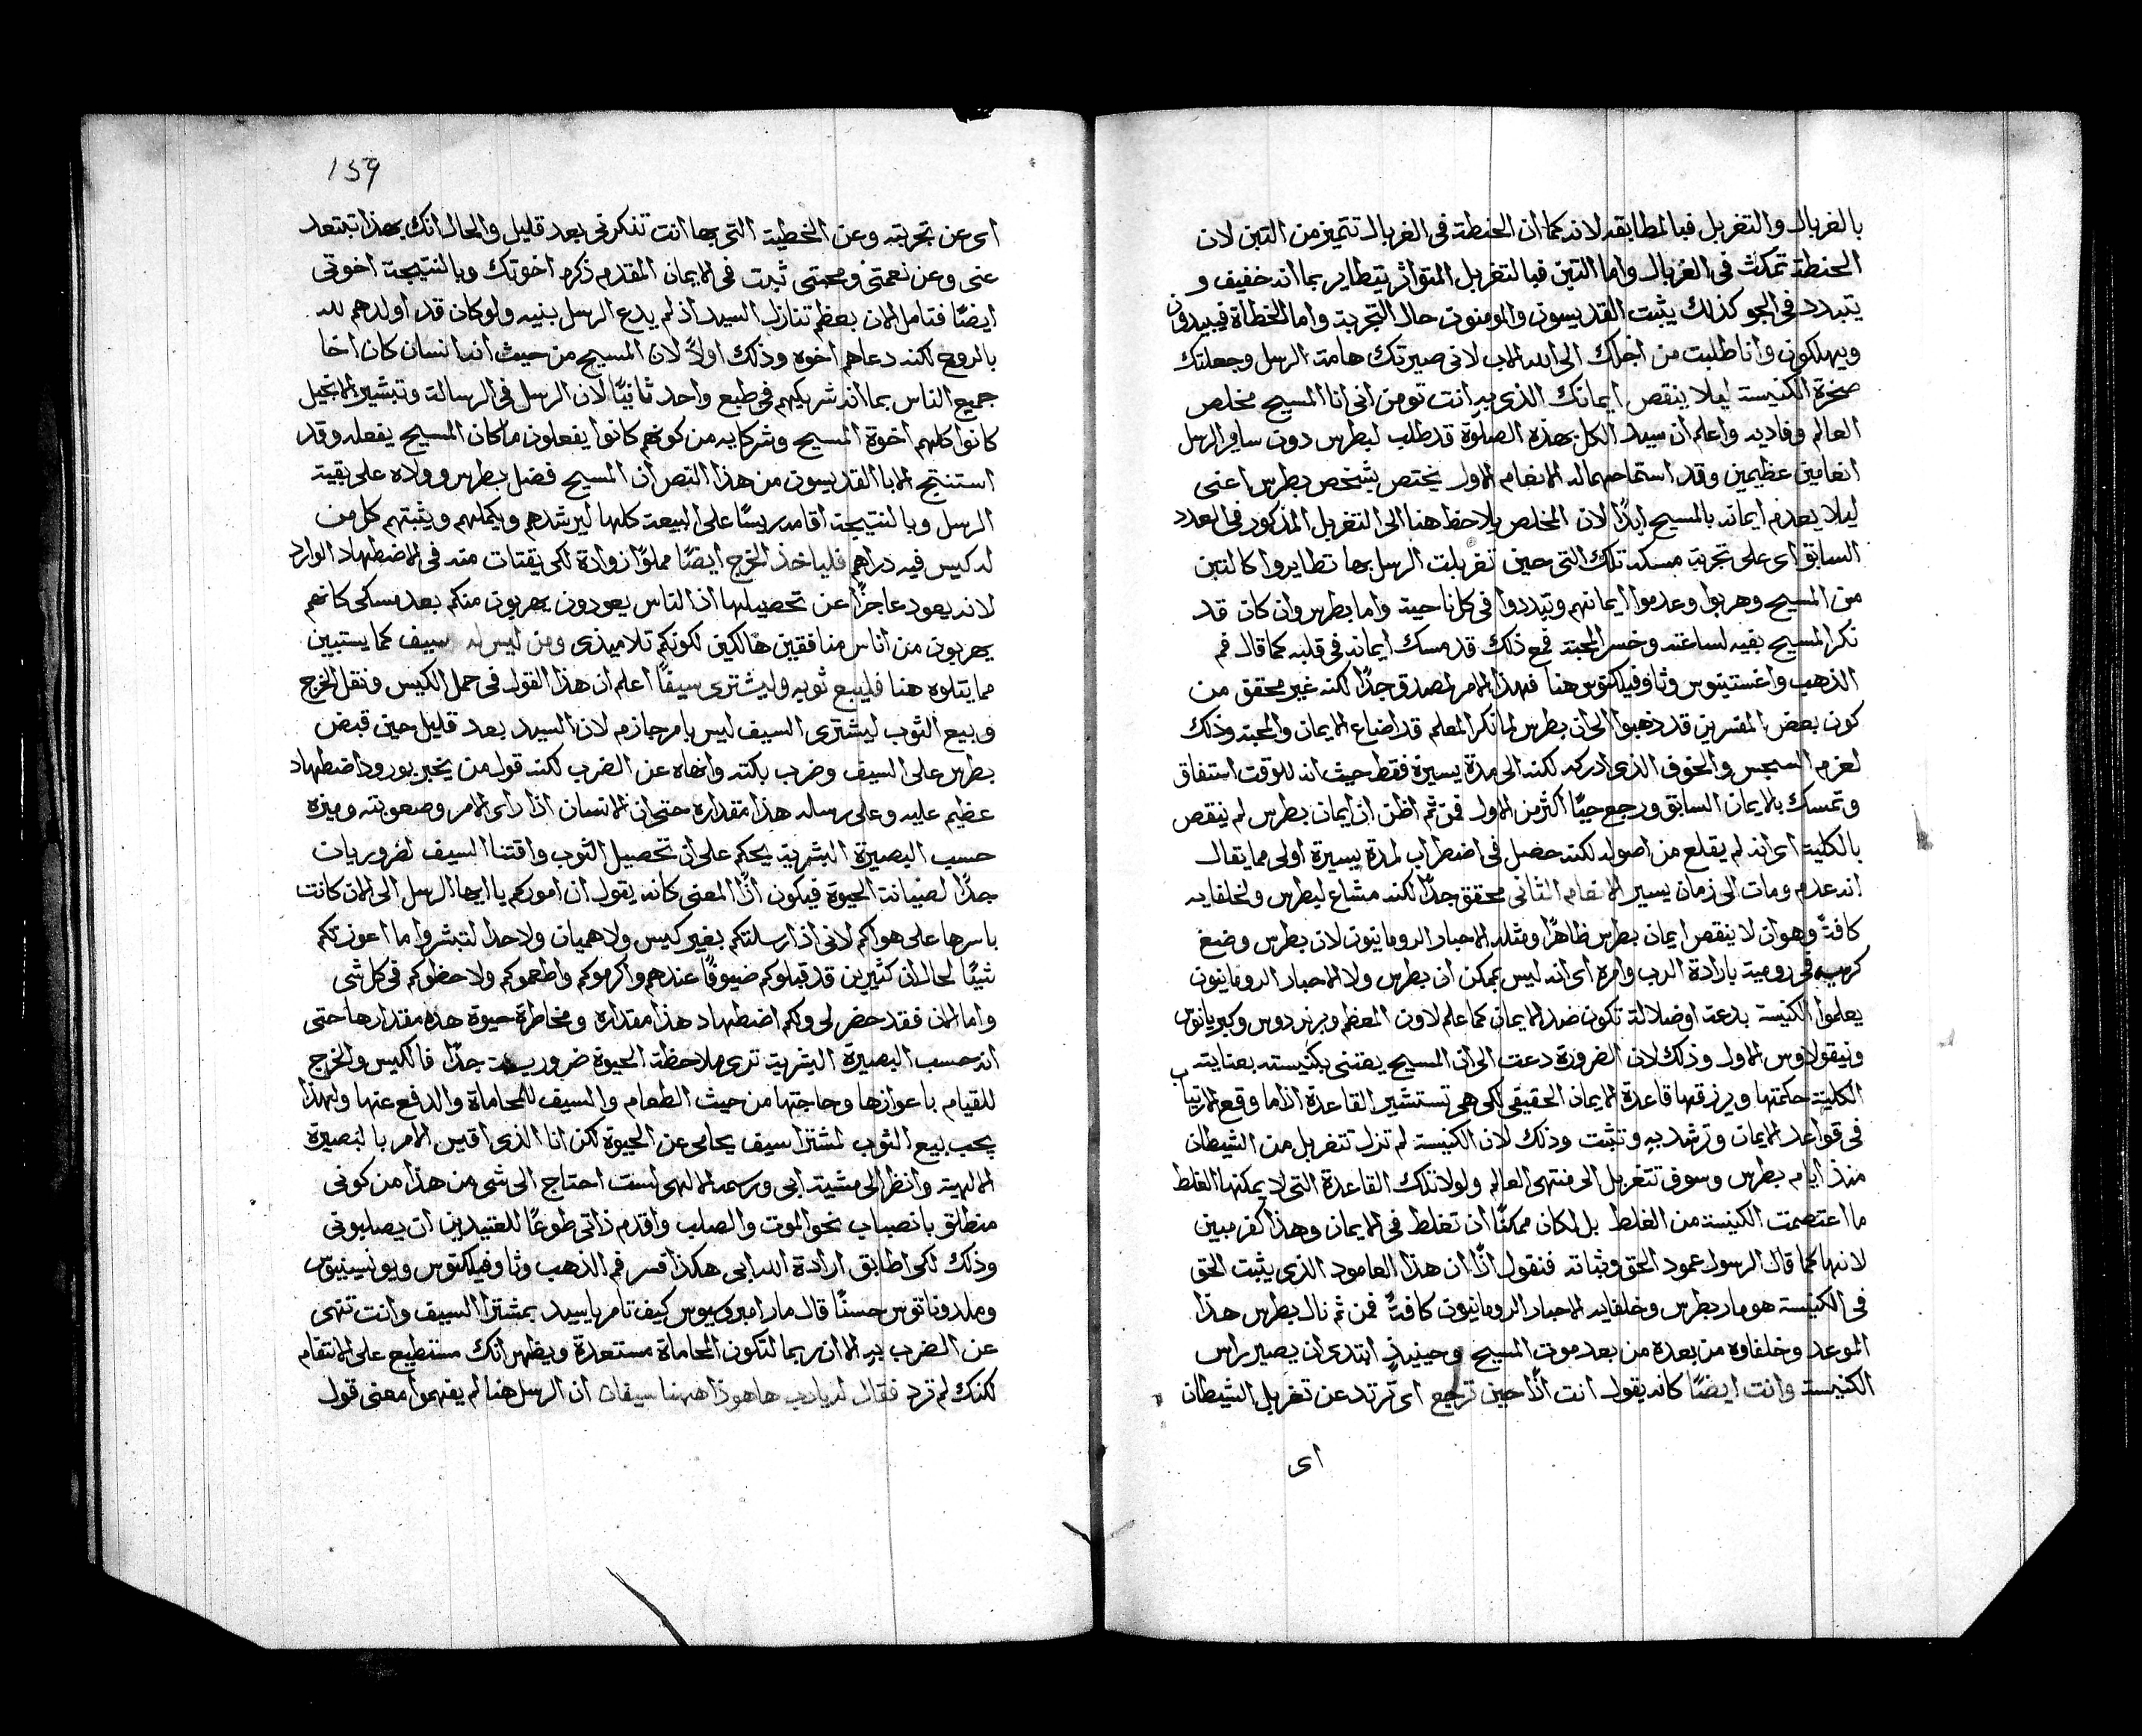 بالغربال والتغربل فبالمطابقه لانه كما ان الحنطة فى الغربال تتميز من التبن لان
الحنطة تمكث فى الغربال واما التبن فبالتغربل المتواتر يتطاير بما انه خفيف و
يتبدد فى الجو كذلك يثبت القديسون والمومنون حال التجربة واما الخطاة فيبيدون
ويهلكون وانا طلبت من اجلك الى الله الاب لانى صيرتك هامة الرسل وجعلتك
صخرة الكنيسة ليلا ينقص ايمانك الذى به انت تومن انى انا المسيح مخلص
العالم وفاديه واعلم ان سيد الكل بهذه الصلوة قد طلب لبطرس دون ساير الرسل
انعامين عظيمين وقد استماحهما له الانعام الاول يختص بشخص بطرس اعنى
ليلا يعدم ايمانه بالمسيح ابدًا لان المخلص يلاحظ هنا الى التغربل المذكور فى العدد
السابق اى على تجربة مسكه تلك التى حين تغربلت الرسل بها تطايروا كالتبن
من المسيح وهربوا وعدموا ايمانهم وتبددوا فى كل ناحية واما بطرس وان كان قد
نكر المسيح بفيه لساعته وخسر المحبة فمع ذلك قد مسك ايمانه فى قلبه كما قال فم
الذهب واغستينوس وثاوفيلكتوس هنا فهذا الامر لمصدق جدًا لكنه غير محقق من
كون بعض المفسرين قد ذهبوا الى ان بطرس لما نكر المعلم قد اضاع الايمان والمحبة وذلك
لعزم السجس والخوف الذى ادركه لكنه الى مدة يسيرة فقط حيث انه للوقت استفاق
وتمسك بالايمان السابق ورجع حيًا اكثر من الاول فمن ثم اظن ان ايمان بطرس لم ينقص
بالكلية اى انه لم يقلع من اصوله لكنه حصل فى اضطراب لمدة يسيرة اولى مما يقال
انه عدم ومات الى زمان يسير الانعام الثانى محقق جدًا لكنه مشاع لبطرس ولخلفايه
كافةً وهو ان لا ينقص ايمان بطرس ظاهرًا ومثله الاحبار الرومانيون لان بطرس وضع
كرسيه فى رومية بارادة الرب وامره اى انه ليس يمكن ان بطرس ولا الاحبار الرومانيون
يعلموا الكنيسة بدعة او ضلالة تكون ضد الايمان كما علم لاون المعظم وبرنردوس وكبريانوس
ونيقولاوس الاول وذلك لان الضرورة دعت الى ان المسيح يعتنى بكنيسته بعنايته
الكلية حكمتها ويرزقها قاعدة الايمان الحقيقى لكى هى تستشير القاعدة اذا ما وقع الارتياب
فى قواعد الايمان وترشد به وتثبت وذلك لان الكنيسة لم تزل تتغربل من الشيطان
منذ ايام بطرس وسوف تتغربل الى منتهى العالم ولولا تلك القاعدة التى لا يمكنها الغلط
ما اعتصمت الكنيسة من الغلط بل لكان ممكنًا ان تغلط فى الايمان وهذا كفر مبين
لانها كما قال الرسول عمود الحق وثباته فنقول اذًا ان هذا العامود الذى يثبت الحق
فى الكنيسة هو مار بطرس وخلفايه الاحبار الرومانيون كافةً فمن ثم نال بطرس هذا
الموعد وخلفاوه من بعده من بعد موت المسيح وحينيذٍ ابتدى ان يصير راس
الكنيسة وانت ايضًا كانه يقول انت اذًا حين ترجع اى ترتد عن تغربل الشيطان
اى
159
اى عن تجربته وعن الخطية التى بها انت تنكرنى بعد قليل والحال انك بهذا تبتعد
عنى وعن نعمتى ومحبتى ثبت فى الايمان المقدم ذكره اخوتك وبالنتيجة اخوتى
ايضًا فتامل الان بعظم تنازل السيد اذ لم يدع الرسل بنيه ولو كان قد اولدهم لله
بالروح لكنه دعاهم اخوه وذلك اولاً لان المسيح من حيث انه انسان كان اخا
جميع الناس بما انه شريكهم فى طبع واحد ثانيًا لان الرسل فى الرسالة وتبشير الانجيل
كانوا كلهم اخوة المسيح وشركايه من كونهم كانوا يفعلون ما كان المسيح يفعله وقد
استنتج الابا القديسون من هذا النص ان المسيح فضل بطرس وولاه على بقية
الرسل وبالنتيجة اقامه ريسًا على البيعة كلها ليرشدهم ويكملهم ويثبتهم كل من
له كيس فيه دراهم فلياخذ الخرج ايضًا مملوًا زوادة لكى يقتات منه فى الاضطهاد الوارد
لانه يعود عاجزًا عن تحصيلها اذ الناس يعودون يهربون منكم بعد مسكى كانهم
يهربون من اناس منافقين هالكين لكونكم تلاميذى ومن ليس له سيف كما يستبين
مما يتلوه هنا فليبيع ثوبه وليشترى سيفًا اعلم ان هذا القول فى حمل الكيس ونقل الخرج
وبيع الثوب ليشترى السيف ليس بامر جازم لان السيد بعد قليل حين قبض
بطرس على السيف وضرب بكته وانهاه عن الضرب لكنه قول من يخبر بورود اضطهاد
عظيم عليه وعلى رسله هذا مقداره حتى ان الانسان اذا راى الامر وصعوبته وميزه
حسب البصيرة البشرية يحكم على ان تحصيل الثوب واقتنا السيف لضروريات
جدًا لصيانة الحيوة فيكون اذًا المعنى كانه يقول ان اموركم يا ايها الرسل الى الان كانت
باسرها على هواكم لانى اذ ارسلتكم بغير كيس ولا هميان ولا حذا لتبشروا ما اعوزتكم
شيًا لحال ان كثيرين قد قبلوكم ضيوفًا عندهم واكرموكم واطعموكم ولاحظوكم فى كل شى
واما الان فقد حضر لى ولكم اضطهاد هذا مقداره ومخاطرة حيوة هذه مقدارها حتى
انه حسب البصيرة البشرية ترى ملاحظة الحيوة ضرورية جدًا فالكيس والخرج
للقيام باعوازها وحاجتها من حيث الطعام والسيف للمحاماة والدفع عنها ولهذا
يجب بيع الثوب لمشترا سيف يحامى عن الحيوة لكن انا الذى اقيس الامر بالبصيرة
الالهية وانظر الى مشية ابى ورسمه الالهى لست احتاج الى شى من هذا من كونى
منطلق بانصباب نحو الموت والصلب واقدم ذاتى طوعًا للعتيدين ان يصلبونى
وذلك لكى اطابق ارادة الله ابى هكذا فسر فم الذهب وثاوفيلكتوس ويونسينيوس
وملدوناتوس حسنًا قال مار امبروسيوس كيف تامر يا سيد بمشترا السيف وانت تنهى
عن الضرب به الا ان ربما لتكون المحاماة مستعدة ويظهر انك مستطيع على الانتقام
لكنك لم ترد فقال له يا رب ها هوذا ههنا سيفان ان الرسل هنا لم يفهموا معنى قول